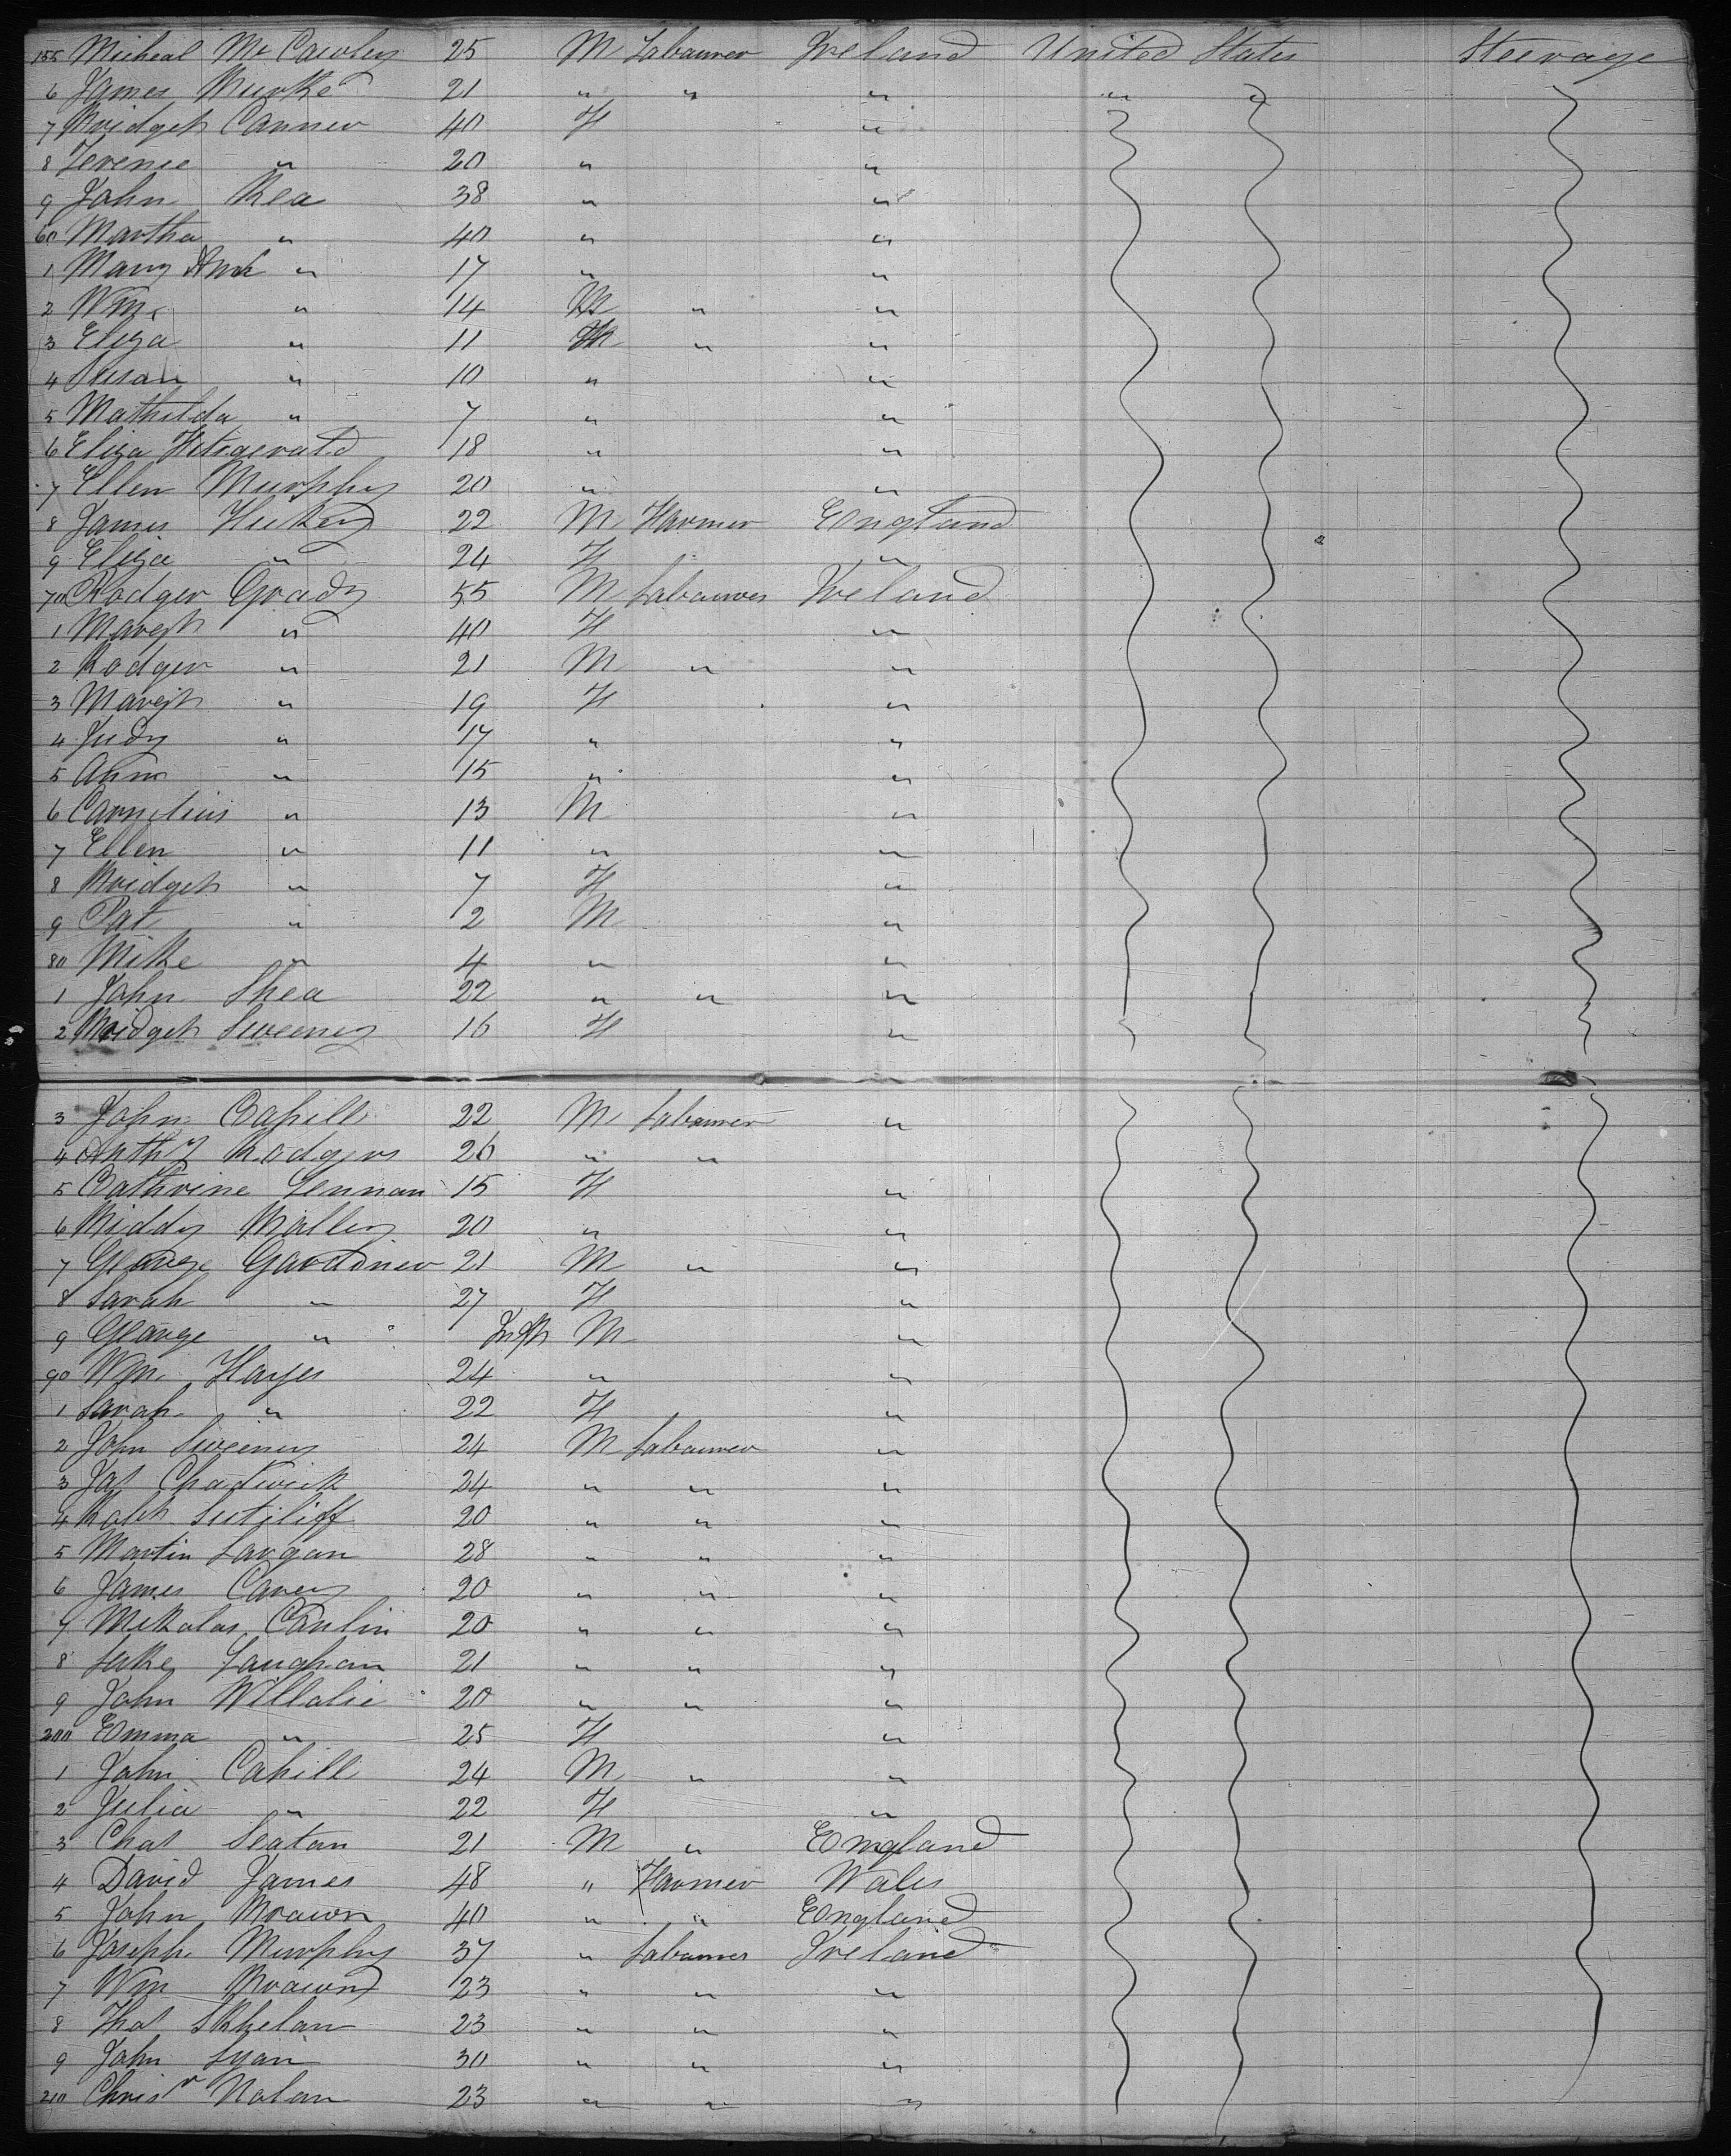 155 Micheal McCawley 25 M Labaurer Ireland United States Steerage
6 James Burke 21 " " " " "
7 Bridget Conner 40 F "
8 Terence " 20 " "
9 John Rea 38 " "
60 Martha " 40 " "
1 Mary Ann " 17 " "
2 Wm. " 14 M " "
3 Eliza " 11 " "
4 Susan " 10 " "
5 Mathilda " 7 " "
6 Eliza Fitzgerald 18 " "
7 Ellen Murphy 20 " "
8 James 22 M Farmer England
9 Eliza " 24 F "
70 Rodger Grady 55 M Labaurer Ireland
1 Margt " 40 F "
2 Rodger " 21 M " "
3 Margt " 19 F "
4 Judy " 17 " "
5 Ann " 15 " "
6 Cornelius " 13 M "
7 Ellen " 11 " "
8 Bridget " 7 F "
9 Pat " 2 M "
80 Mike " 4 " "
1 John Shea 22 " " "
2 Bridget Sweeney 16 F "
3 John Cahill 22 M Labaurer "
4 Anthy Rodgers 26 " "
5 Cathrine Lennan 15 F "
6 Biddy Malley 20 " "
7 George Gardiner 21 M " "
8 Sarah " 27 F "
9 George " Inft M "
90 Wm. Hayes 24 " "
1 Sarah " 22 F "
2 John Sweeney 24 M Labaurer "
3 Jas Chadwick 24 " " "
4 Ralph Sutcliff 20 " " "
5 Martin Largan 28 " " "
6 James Carey 20 " " "
7 Nikolas Conlin 20 " " "
8 Luke Laughan 21 " " "
9 John 20 " " "
200 Emma " 25 F "
1 John Cahill 24 M " "
2 Julia " 22 F "
3 Chas Seatan 21 M " England
4 David James 48 " Farmer Wales
5 John Brawn 40 " " England
6 Joseph Murphy 37 " Labaurer Ireland
7 Wm Brawn 23 " " "
8 Thos 23 " " "
9 John 30 " " "
210 Chrisr Nolan 23 " " "